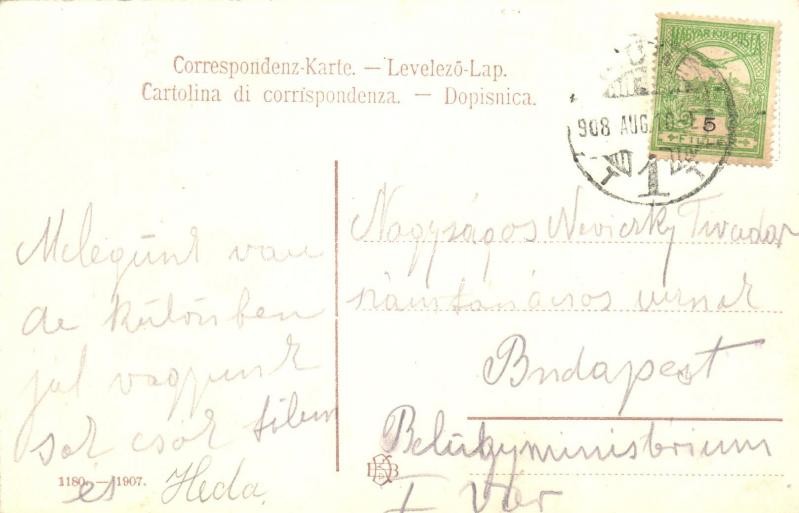 Correspondenz-Karte. — Levelező-Lap.
Cartolina di corrispondenza. — Dopisnica.
MAGYAR KIR. POSTA
5
FILLÉR
908 AUG. 10
1
Melegünk van
de külömben
jól vagyunk
sok csók
és Heda
Nagyságos Neviczky Tivadar
számtanácsos urnak
Budapest
Belügyministerium
I Vár
1180. — 1907.